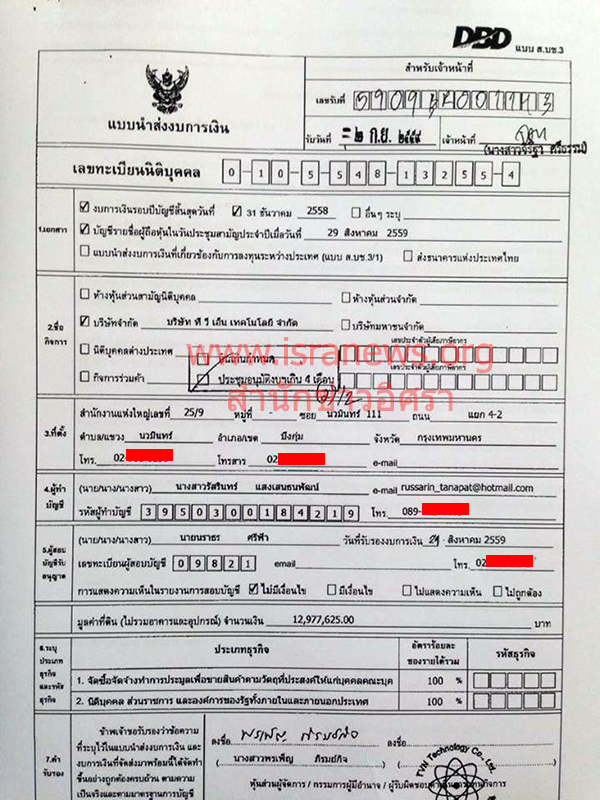 DBD แบบ ส.บช.3
สำหรับเจ้าหน้าที่
แบบนำส่งงบการเงิน
เลขรับที่
รับวันที่ = ๒ ก.ย. ๒๕๕๙ เจ้าหน้าที่
เลขทะเบียนนิติบุคคล 0-10-5-548-13255-4
1.เอกสาร
งบการเงินรอบปีบัญชีสิ้นสุดวันที่ 31 ธันวาคม 2558 อื่นๆ ระบุ
บัญชีรายชื่อผู้ถือหุ้นในวันประชุมสามัญประจำปีเมื่อวันที่ 29 สิงหาคม 2559
แบบนำส่งงบการเงินที่เกี่ยวข้องกับการลงทุนระหว่างประเทศ (แบบ ส.บช.3/1) ส่งธนาคารแห่งประเทศไทย
2.ชื่อ
กิจการ
ห้างหุ้นส่วนสามัญนิติบุคคล ห้างหุ้นส่วนจำกัด
บริษัทจำกัด บริษัท ที วี เอ็น เทคโนโลยี จำกัด บริษัทมหาชนจำกัด
เลขประจำตัวผู้เสียภาษีอากร
นิติบุคคลต่างประเทศ
www.isranews.org
เลขประจำตัวผู้เสียภาษีอากร
กิจการร่วมค้า ประชุมอนุมัติงบฯเกิน 4 เดือน
สำนักข่าวอิศรา
3.ที่ตั้ง
สำนักงานแห่งใหญ่เลขที่ 25/9 หมู่ที่ - ซอย นวมินทร์ 111 ถนน แยก 4-2
ตำบล/แขวง นวมินทร์ อำเภอ/เขต บึงกุ่ม จังหวัด กรุงเทพมหานคร
โทร. 02 โทรสาร 02 e-mail
4.ผู้ทำ
บัญชี
(นาย/นาง/นางสาว) นางสาวรัสรินทร์ แสงเสนธนพัฒน์ e-mail russarin_tanapat@hotmail.com
รหัสผู้ทำบัญชี 3950300184219 โทร. 089-
5.ผู้สอบ
บัญชีรับ
อนุญาต
(นาย/นาง/นางสาว) นายนราธร ศรีฟ้า วันที่รับรองงบการเงิน สิงหาคม 2559
เลขทะเบียนผู้สอบบัญชี 09821 email โทร. 02
การแสดงความเห็นในรายงานการสอบบัญชี ไม่มีเงื่อนไข มีเงื่อนไข ไม่แสดงความเห็น ไม่ถูกต้อง
มูลค่าที่ดิน (ไม่รวมอาคารและอุปกรณ์) จำนวนเงิน 12,977,625.00 บาท
6.ระบุ
ประเภท
ธุรกิจ
และรหัส
ธุรกิจ
ประเภทธุรกิจ อัตราร้อยละ
ของรายได้รวม รหัสธุรกิจ
1. จัดซื้อจัดจ้างทำการประมูลเพื่อขายสินค้าตามวัตถุที่ประสงค์ให้แก่บุคคลคณะบุค 100 %
2. นิติบุคคล ส่วนราชการ และองค์การของรัฐทั้งภายในและภายนอกประเทศ 100 %
7.คำ
รับรอง
ข้าพเจ้าขอรับรองว่าข้อความ
ที่ระบุไว้ในแบบนำส่งงบการเงิน และ
งบการเงินที่จัดส่งมาพร้อมนี้ได้จัดทำ
ขึ้นอย่างถูกต้องครบถ้วน ตามความ
เป็นจริงและตามมาตรฐานการบัญชี
ลงชื่อ ลงชื่อ
นางสาวพรเพ็ญ ภิรมย์กิจ
TVN Technology Co., Ltd.
หุ้นส่วนผู้จัดการ / กรรมการผู้มีอำนาจ / ผู้รับผิดชอบ